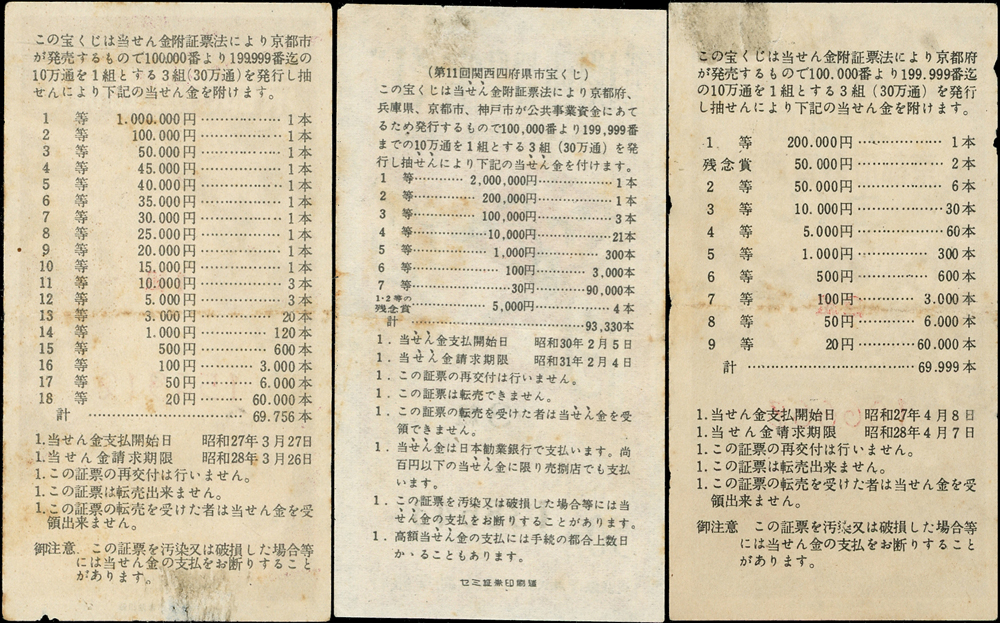 この宝くじは当せん金附証票法により京都市
が発売するもので100.000番より199.999番迄の
10万通を1組とする3組(30万通)を発行し抽
せんにより下記の当せん金を附けます。
1 等 1.000.000円……………1本
2 等 100.000円……………1本
3 等 50.000円……………1本
4 等 45.000円……………1本
5 等 40.000円……………1本
6 等 35.000円……………1本
7 等 30.000円……………1本
8 等 25.000円……………1本
9 等 20.000円……………1本
10 等 15.000円……………1本
11 等 10.000円……………3本
12 等 5.000円……………3本
13 等 3.000円……………20本
14 等 1.000円……………120本
15 等 500円……………600本
16 等 100円……………3.000本
17 等 50円……………6.000本
18 等 20円……………60.000本
計 ……………69.756本
1.当せん金支払開始日 昭和27年3月27日
1.当せん金請求期限 昭和28年3月26日
1.この証票の再交付は行いません。
1.この証票は転売出来ません。
1.この証票の転売を受けた者は当せん金を受
領出来ません。
御注意 この証票を汚染又は破損した場合等
には当せん金の支払をお断りすること
があります。
(第11回関西四府県市宝くじ)
この宝くじは当せん金附証票法により京都府、
兵庫県、京都市、神戸市が公共事業資金にあて
るため発行するもので100,000番より199,999番
までの10万通を1組とする3組(30万通)を発
行し抽せんにより下記の当せん金を付けます。
1 等………… 2,000,000円……………1本
2 等………… 200,000円……………1本
3 等………… 100,000円……………3本
4 等………… 10,000円……………21本
5 等………… 1,000円……………300本
6 等………… 100円…………3,000本
7 等………… 30円…………90,000本
1・2等の
残念賞………… 5,000円……………4本
計……………93,330本
1.当せん金支払開始日 昭和30年2月5日
1.当せん金請求期限 昭和31年2月4日
1.この証票の再交付は行いません。
1.この証票は転売できません。
1.この証票の転売を受けた者は当せん金を受
領できません。
1.当せん金は日本勧業銀行で支払います。尚
百円以下の当せん金に限り売捌店でも支払
います。
1.この証票を汚染又は破損した場合等には当
せん金の支払をお断りすることがあります。
1.高額当せん金の支払には手続の都合上数日
かゝることもあります。
この宝くじは当せん金附証票法により京都府
が発売するもので100.000番より199.999番迄
の10万通を1組とする3組(30万通)を発行
し抽せんにより下記の当せん金を附けます。
1 等 200.000円……………1本
残念賞 50.000円……………2本
2 等 50.000円……………6本
3 等 10.000円……………30本
4 等 5.000円……………60本
5 等 1.000円……………300本
6 等 500円……………600本
7 等 100円……………3.000本
8 等 50円……………6.000本
9 等 20円……………60.000本
計 ……………69.999本
1.当せん金支払開始日 昭和27年4月8日
1.当せん金請求期限 昭和28年4月7日
1.この証票の再交付は行いません。
1.この証票は転売出来ません。
1.この証票の転売を受けた者は当せん金を受
領出来ません。
御注意 この証票を汚染又は破損した場合等
には当せん金の支払をお断りすること
があります。